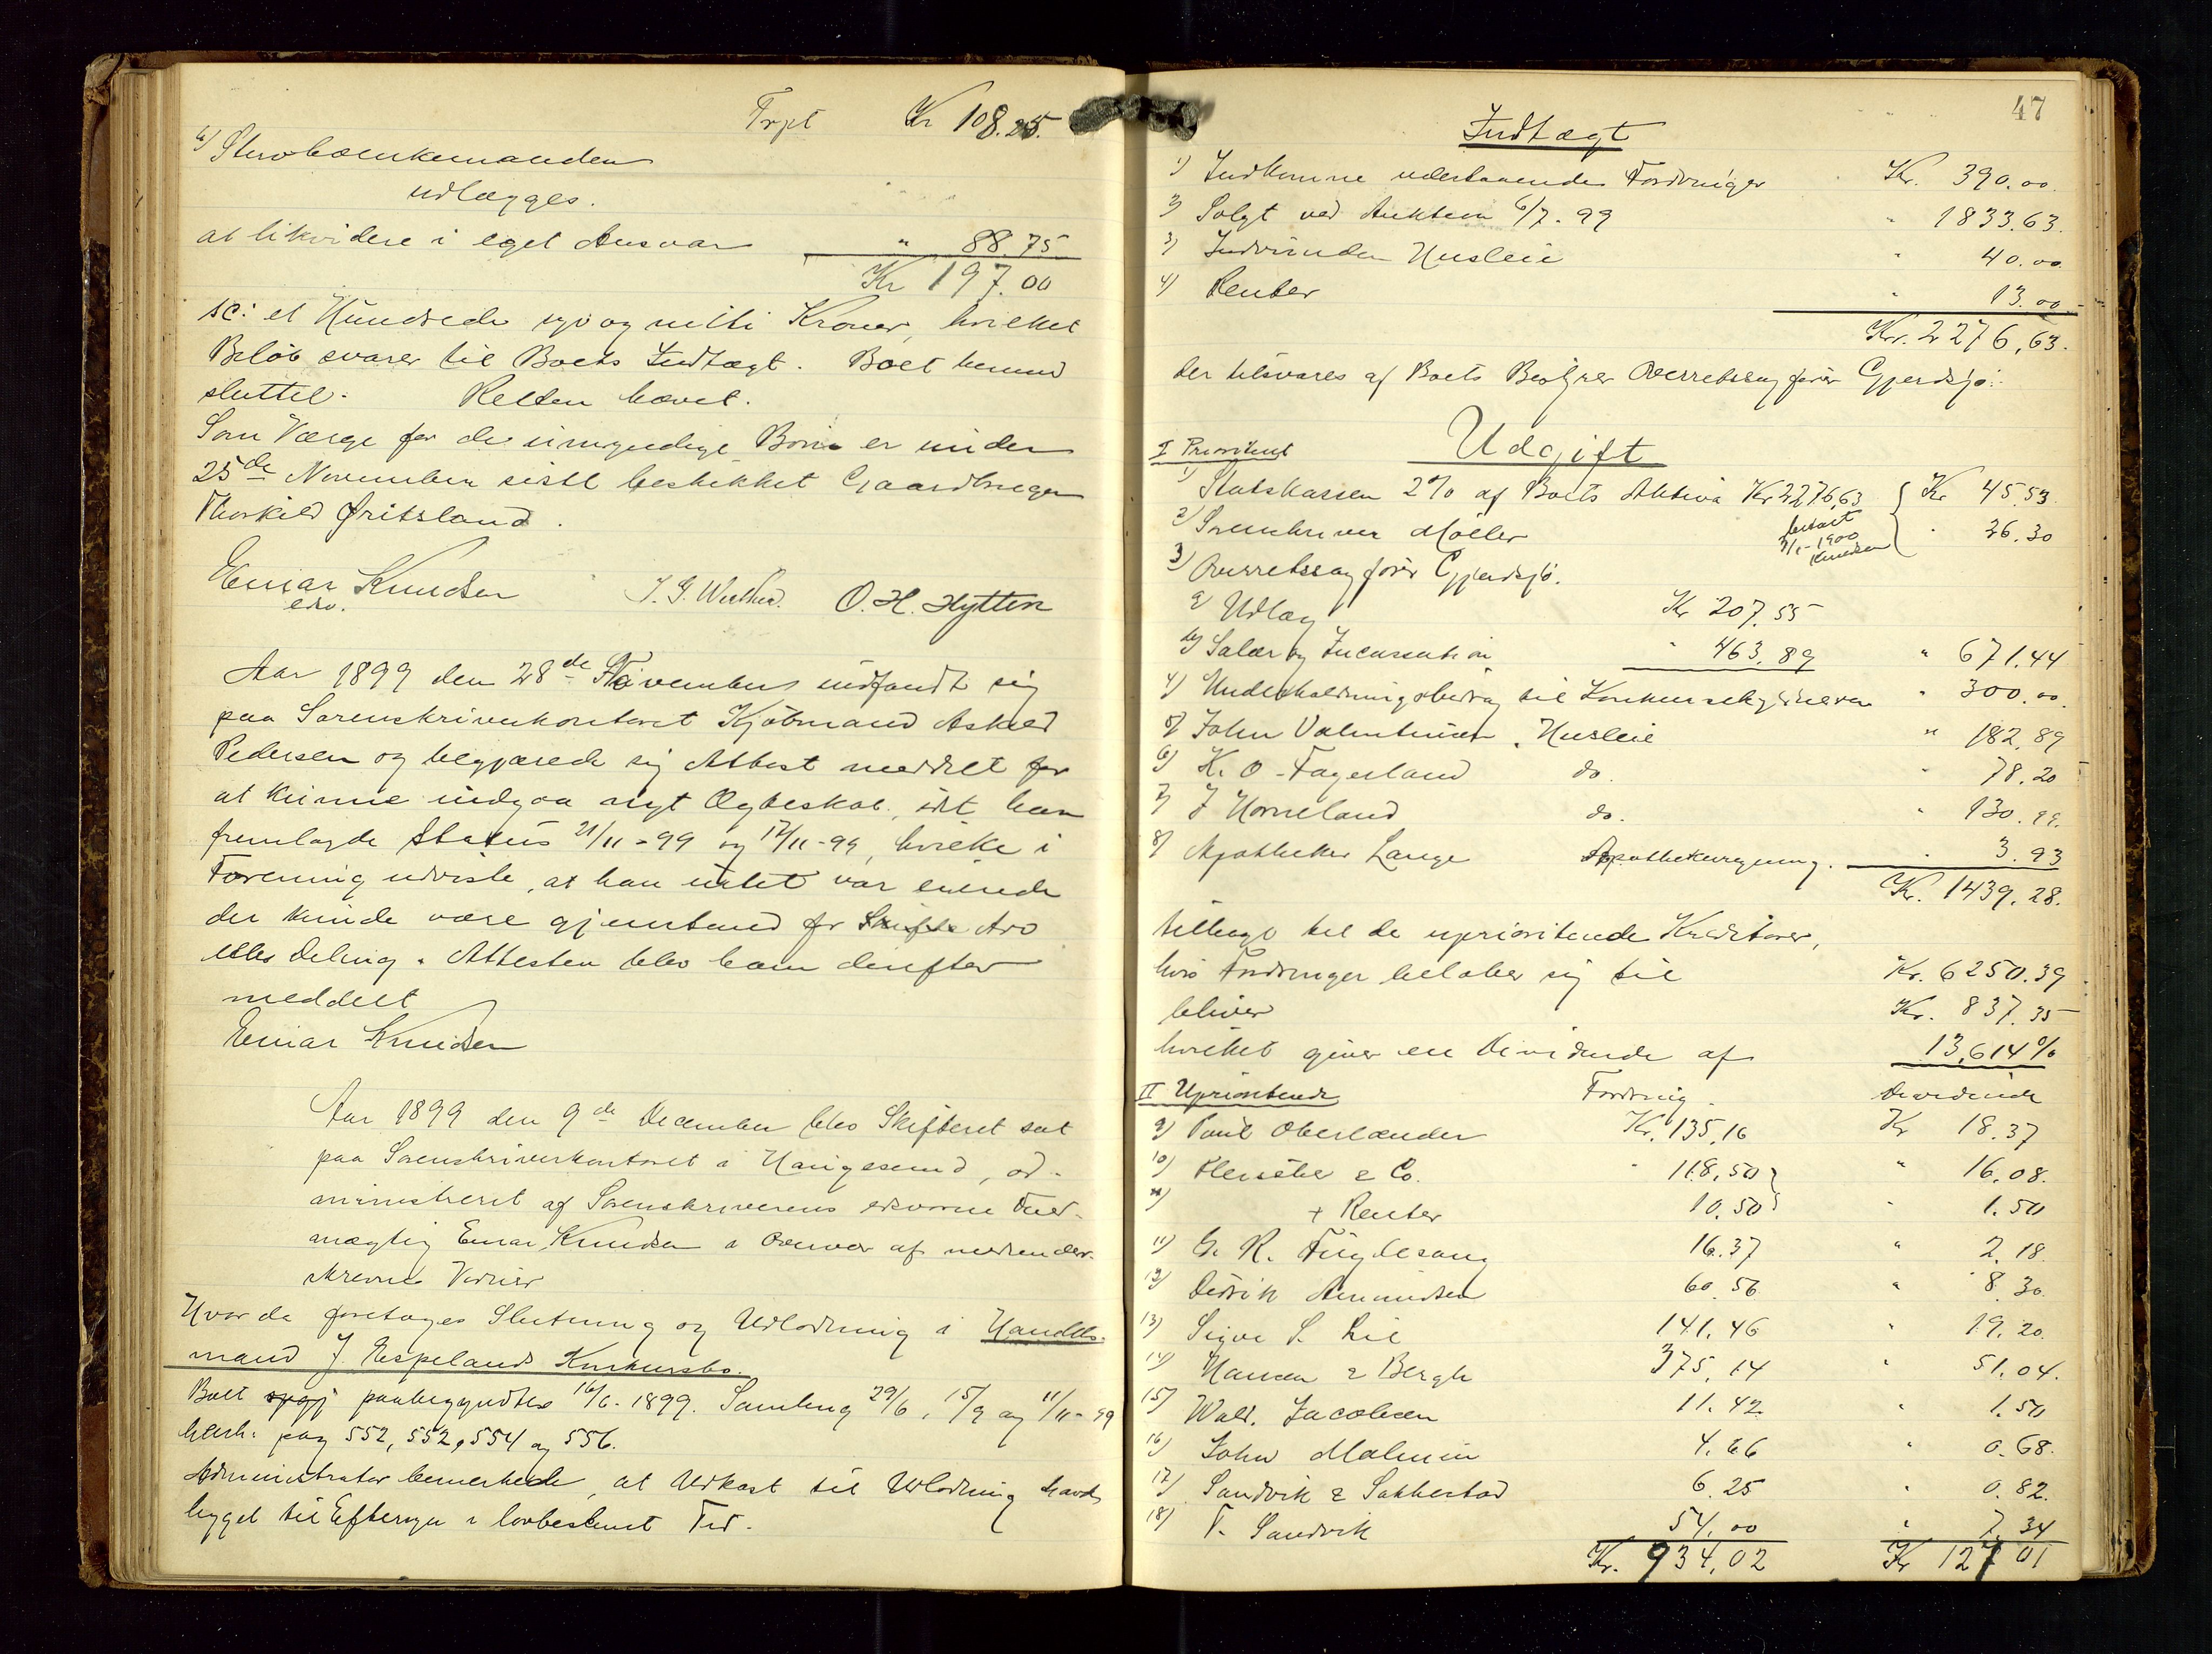 Trpt Kr 108.25.
6) Stervboenkemanden
udlægges.
at likvidere i eget Ansvar " 88.75
Kr 197.00
sc: et Hundrede syv og nitti Kroner, hvilket
Beløb svarer til Boets Indtægt. Boet hermed
sluttet. Retten hævet.
Som Værge for de umyndige Börn er under
25de November sistl beskikket Gaardbruger
Thorkild Fritsland.
Einar Knudsen
edsv.
O. H. Hytten
Aar 1899 den 28de November indfandt sig
paa Sorenskriverkontoret Kjöbmand Askild
Pedersen og begjærede sig Attest meddelt for
at kunne indgaa nyt Ægteskab, idet han
fremlagde Status 21/11-99 og 17/11-99, hvilke i
Forening udviste, at han intet var eiende
der kunde være gjenstand for Skifte Arv
eller Deling. Attesten blev ham derefter
meddelt
Einar Knudsen
Aar 1899 den 9de December blev Skifteret sat
paa Sorenskriverkontoret i Haugesund, ad-
ministreret af Sorenskriverens edsvorne Fuld-
mægtig Einar Knudsen i Overvær af nedenunder-
skrevne Vidner
Hvor da foretoges Slutning og Udlodning i Handels-
mand J. Espelands Konkursbo.
Boet paabegyndtes 16/6-1899. Samling 29/6, 15/9 og 11/11-99
behdl. pag 552, 552, 554 og 556.
Administrator bemerkede, at Udkast til Udlodning havde
ligget til Eftersyn i lovbestemt Tid.
47
Indtægt
1) Indkomne udestaaende Fordringer Kr. 390.00
2) Solgt ved Auktion 6/7-99 " 1833.63.
3) Indvunden Husleie " 40.00
4) Renter " 13.00
Kr. 2276,63.
der tilsvares af Boets Bestyrer Overretssagfører Gjerdsjø.
Udgift
I Prioritert
1) Statskassen 2% af Boets Aktiva Kr 2276,63 Kr 45.53
2) Sorenskriver Møller " 26.30
betalt
3/1-1900
Knudsen
3) Overretssagfører Gjerdsjø.
a) Udlæg Kr 207.55
b) Salær og Incassation " 463.89 " 671.44
4) Underholdningsbidrag til Konkursskyldneren " 300.00
5) John Valentinsen, Husleie " 182.89
6) K. O. Fagerland do. " 78.20
7) J Horneland do. " 130.99.
8) Apotheker Lange Apothekerregning. " 3.93
Kr. 1439.28.
tilbage til de uprioriterede Kreditorer,
hvis Fordringer beløber sig til Kr. 6250.39
bliver Kr. 837.35
hvilket giver en Dividende af 13,614%
II Uprioriterede Fordring. Dividende
9) Paul Oberlænder Kr. 135,16 Kr 18.37
10) Fleischer & Co. " 118,50 " 16.08.
+ Renter 10.50 " 1.50
11) G. R. Fuglesang 16.37 " 2.18
12) Didrik Amundsen 60.56 " 8.30
13) Sigve S. Lie 141.46 " 19.20.
14) Hansen & Bergh 375,14 " 51.04.
15) Wald. Jacobsen 11.42 " 1.50
16) John Malmin 4.66 " 0.68.
17) Sandvik & Sakkestad 6.25 " 0.82.
18) T. Sandvik 54.00 " 7.34
Kr. 934,02 Kr 127 01